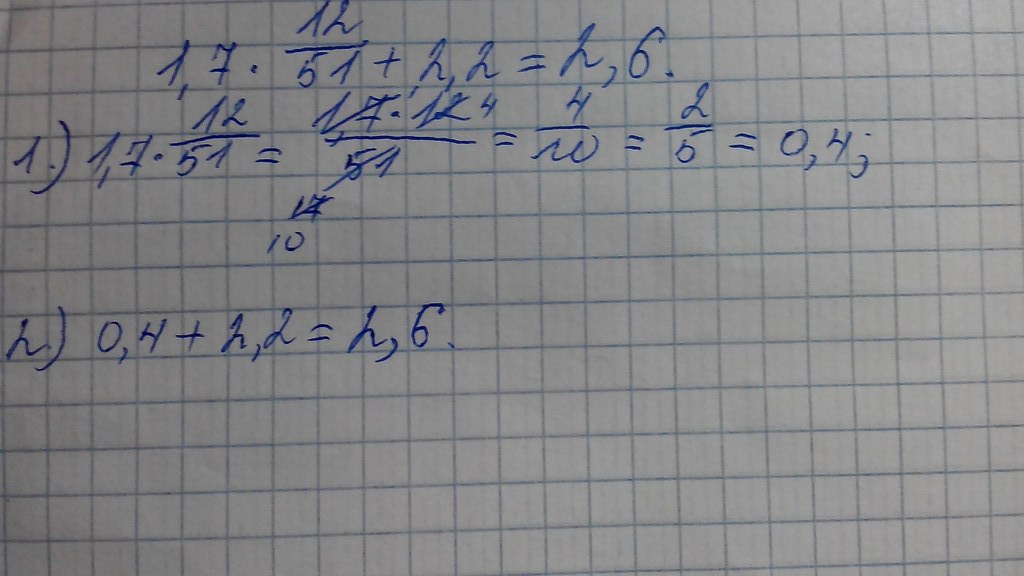 1,7 · 12/51 + 2,2 = 2,6.
1.) 1,7 · 12/51 = 1,7 · 12 4/51 = 4/10 = 2/5 = 0,4;
17
10
2.) 0,4 + 2,2 = 2,6.